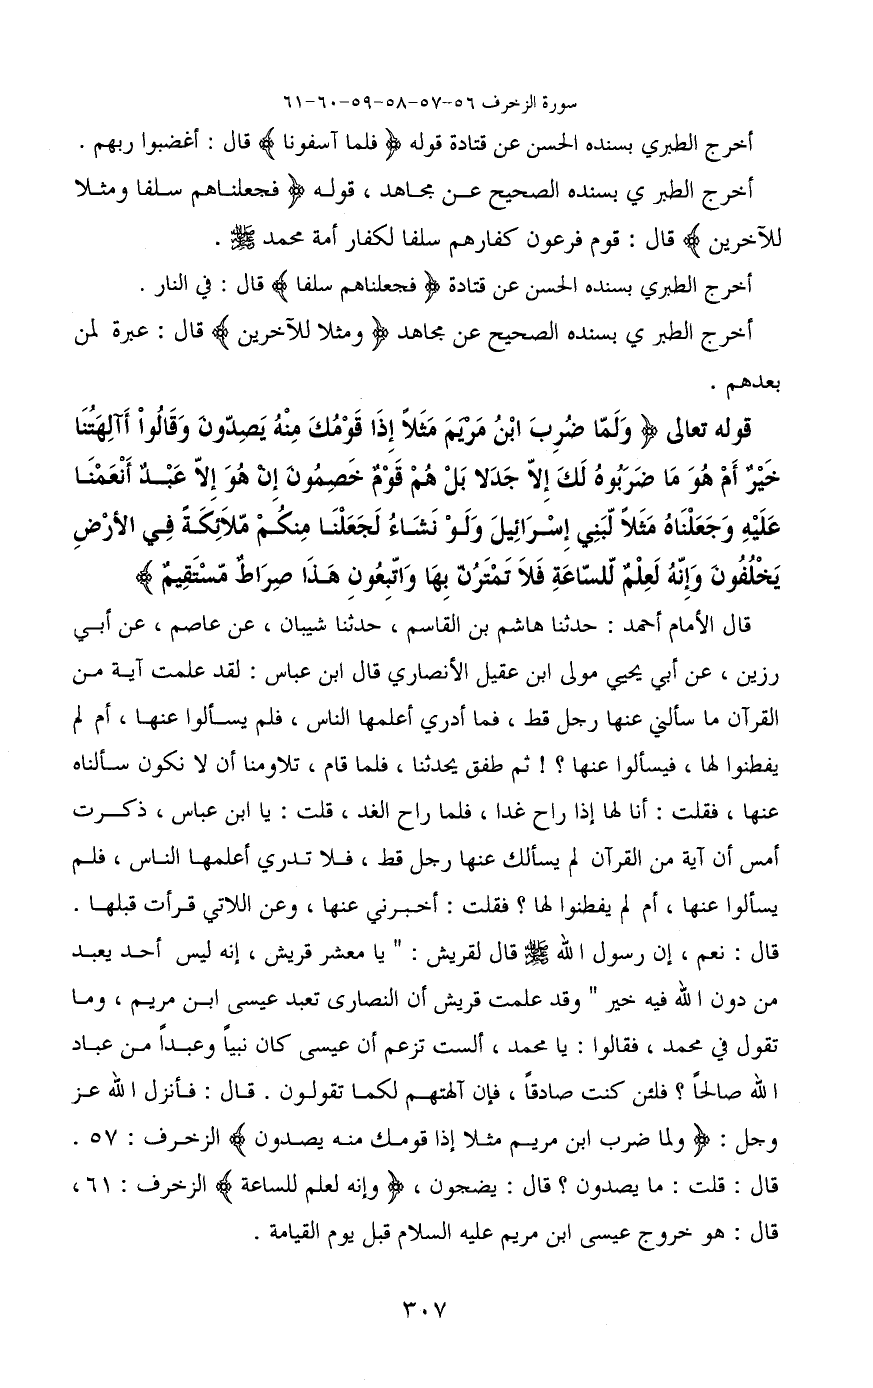 سورة الزخرف ٥٦-٥٧-٥٨-٥٩-٦٠-٦١
أخرج الطبري بسنده الحسن عن قتادة قوله ﴿ فلما آسفونا ﴾ قال : أغضبوا ربهم .
أخرج الطبر ي بسنده الصحيح عن مجاهد ، قوله ﴿ فجعلناهم سلفا ومثلا
للآخرين ﴾ قال : قوم فرعون كفارهم سلفا لكفار أمة محمد ﷺ .
أخرج الطبري بسنده الحسن عن قتادة ﴿ فجعلناهم سلفا ﴾ قال : في النار .
أخرج الطبر ي بسنده الصحيح عن مجاهد ﴿ ومثلا للآخرين ﴾ قال : عبرة لمن
بعدهم .
قوله تعالى ﴿ وَلَمّا ضُرِبَ ابْنُ مَرْيَمَ مَثَلاً إِذَا قَوْمُكَ مِنْهُ يَصِدّونَ وَقَالُواْ أَآلِهَتُنَا
خَيْرٌ أَمْ هُوَ مَا ضَرَبُوهُ لَكَ إِلاّ جَدَلا بَلْ هُمْ قَوْمٌ خَصِمُونَ إِنْ هُوَ إِلاّ عَبْدٌ أَنْعَمْنَا
عَلَيْهِ وَجَعَلْنَاهُ مَثَلاً لّبَنِي إِسْرَائِيلَ وَلَوْ نَشَاءُ لَجَعَلْنَا مِنكُمْ مّلاَئِكَةً فِي الأرْضِ
يَخْلُفُونَ وَإِنّهُ لَعِلْمٌ لّلسّاعَةِ فَلاَ تَمْتَرُنّ بِهَا وَاتّبِعُونِ هَذَا صِرَاطٌ مّسْتَقِيمٌ ﴾
قال الأمام أحمد : حدثنا هاشم بن القاسم ، حدثنا شيبان ، عن عاصم ، عن أبي
رزين ، عن أبي يحيي مولى ابن عقيل الأنصاري قال ابن عباس : لقد علمت آية من
القرآن ما سألني عنها رجل قط ، فما أدري أعلمها الناس ، فلم يسألوا عنها ، أم لم
يفطنوا لها ، فيسألوا عنها ؟ ! ثم طفق يحدثنا ، فلما قام ، تلاومنا أن لا نكون سألناه
عنها ، فقلت : أنا لها إذا راح غدا ، فلما راح الغد ، قلت : يا ابن عباس ، ذكرت
أمس أن آية من القرآن لم يسألك عنها رجل قط ، فلا تدري أعلمها الناس ، فلم
يسألوا عنها ، أم لم يفطنوا لها ؟ فقلت : أخبرني عنها ، وعن اللاتي قرأت قبلها .
قال : نعم ، إن رسول الله ﷺ قال لقريش : " يا معشر قريش ، إنه ليس أحد يعبد
من دون الله فيه خير " وقد علمت قريش أن النصارى تعبد عيسى ابن مريم ، وما
تقول في محمد ، فقالوا : يا محمد ، ألست تزعم أن عيسى كان نبياً وعبداً من عباد
الله صالحاً ؟ فلئن كنت صادقاً ، فإن آلهتهم لكما تقولون . قال : فأنزل الله عز
وجل : ﴿ ولما ضرب ابن مريم مثلا إذا قومك منه يصدون ﴾ الزخرف : ٥٧ .
قال : قلت : ما يصدون ؟ قال : يضجون ، ﴿ وإنه لعلم للساعة ﴾ الزخرف : ٦١ ،
قال : هو خروج عيسى ابن مريم عليه السلام قبل يوم القيامة .
٣٠٧